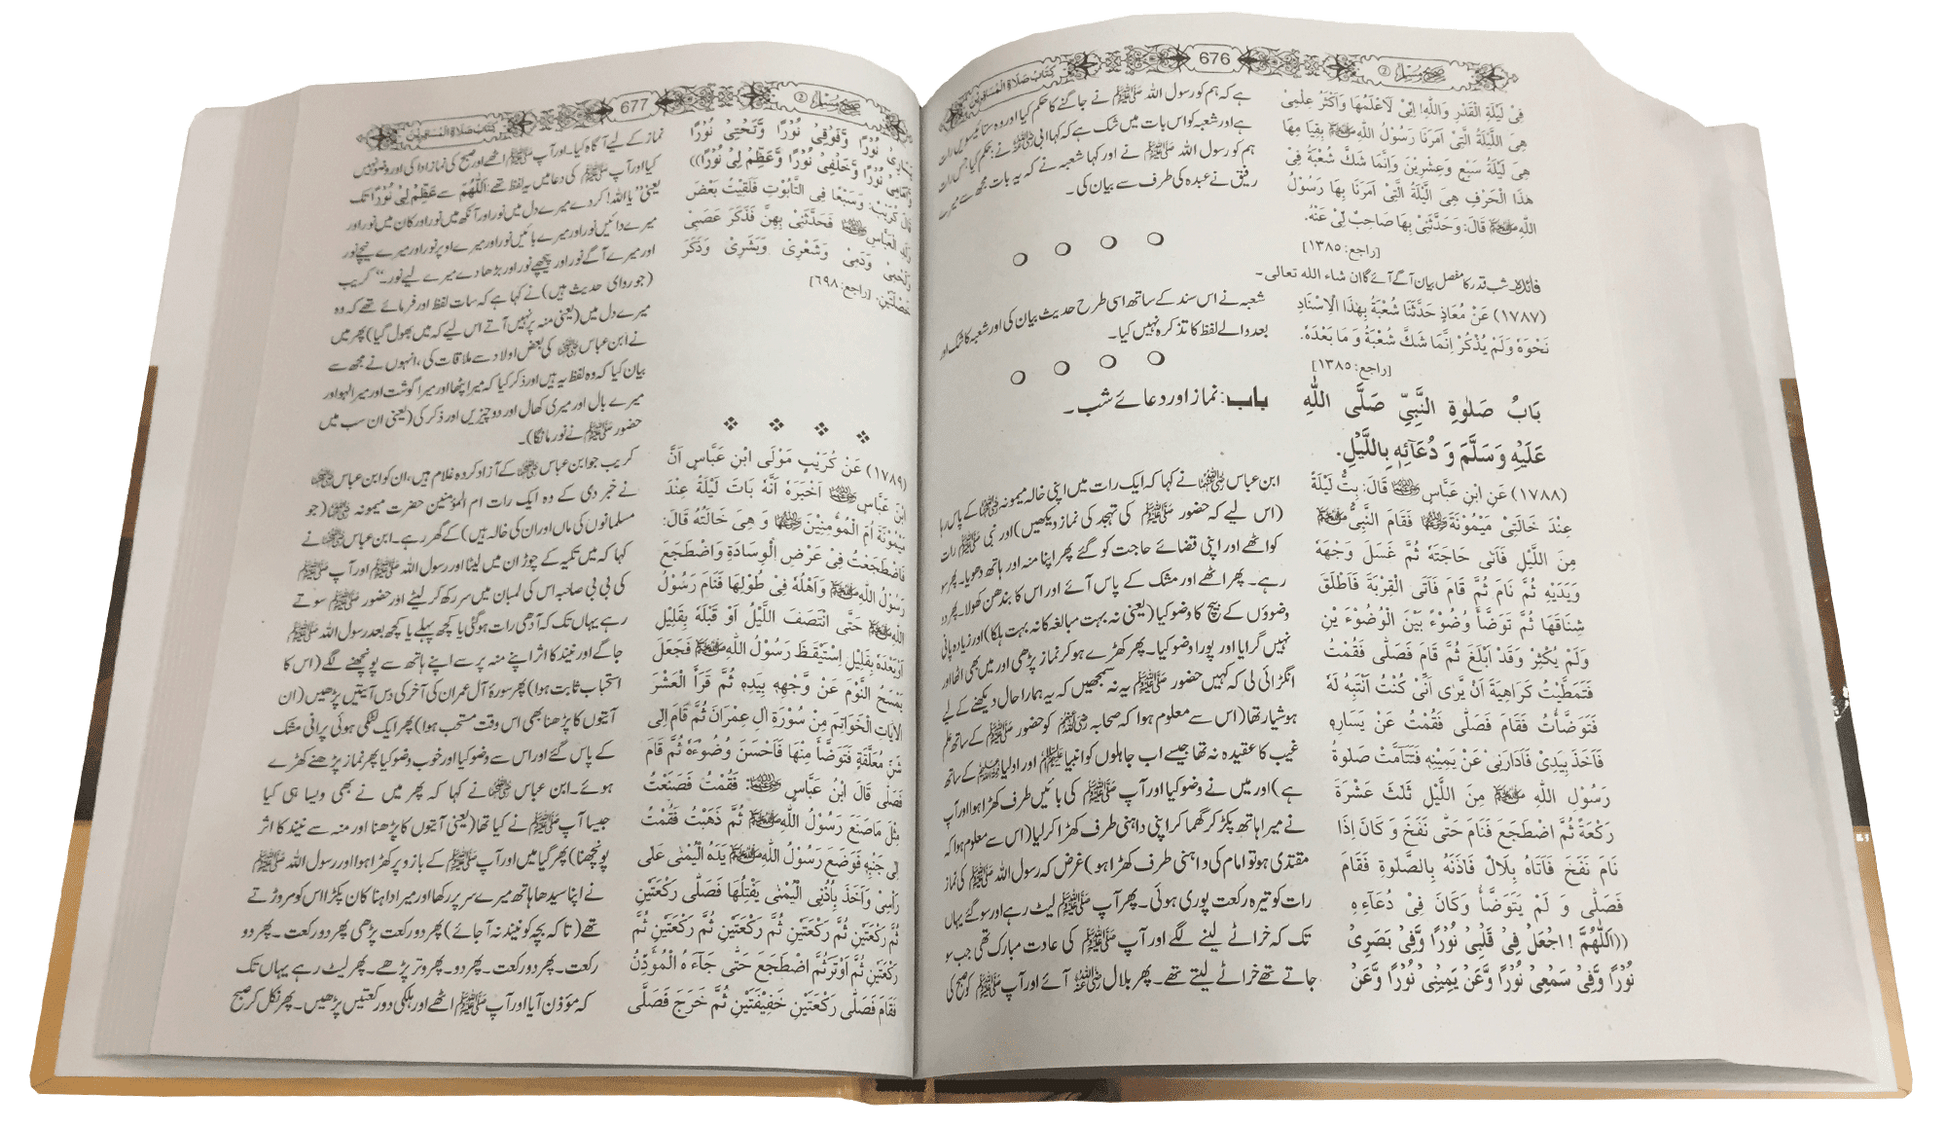 صحیح مسلم ② 676 کتاب صلاة المسافرین
فِیْ لَیْلَةِ الْقَدْرِ وَاللّٰهِ! اِنِّیْ لَاَعْلَمُهَا وَاَکْثَرُ عِلْمِیْ
هِیَ اللَّیْلَةُ الَّتِیْ اَمَرَنَا رَسُوْلُ اللّٰهِ ﷺ بِقِیَامِهَا
هِیَ لَیْلَةُ سَبْعٍ وَعِشْرِیْنَ وَاِنَّمَا شَكَّ شُعْبَةُ فِیْ
هٰذَا الْحَرْفِ هِیَ الَّیْلَةُ الَّتِیْ اَمَرَنَا بِهَا رَسُوْلُ
اللّٰهِ ﷺ قَالَ: وَحَدَّثَنِیْ بِهَا صَاحِبٌ لِیْ عَنْهُ.
[راجع: ١٣٨٥]
ہے کہ ہم کو رسول اللہ ﷺ نے جاگنے کا حکم کیا اور وہ ستائیسویں رات
ہے اور شعبہ کو اس بات میں شک ہے کہ کہا ابی نے: حکم کیا جس رات
ہم کو رسول اللہ ﷺ نے اور کہا شعبہ نے کہ یہ بات مجھ سے میرے
رفیق نے عبدہ کی طرف سے بیان کی۔
فائدہ۔ شب قدر کا مفصل بیان آگے آئے گا ان شاء اللہ تعالی۔
(١٧٨٧) عَنْ مُعَاذٍ حَدَّثَنَا شُعْبَةُ بِهٰذَا الْاِسْنَادِ
نَحْوَهٗ وَلَمْ یُذْکُرْ اِنَّمَا شَكَّ شُعْبَةُ وَ مَا بَعْدَهٗ.
[راجع: ١٣٨٥]
شعبہ نے اس سند کے ساتھ اسی طرح حدیث بیان کی اور شعبہ کا شک اور
بعد والے لفظ کا تذکرہ نہیں کیا۔
بَابُ صَلٰوةِ النَّبِیِّ صَلَّی اللّٰهُ
عَلَیْهِ وَسَلَّمَ وَ دُعَآئِهٖ بِاللَّیْلِ.
باب: نماز اور دعائے شب۔
(١٧٨٨) عَنِ ابْنِ عَبَّاسٍ ﷺ قَالَ: بِتُّ لَیْلَةً
عِنْدَ خَالَتِیْ مَیْمُوْنَةَ فَقَامَ النَّبِیُّ ﷺ
مِنَ اللَّیْلِ فَاَتٰی حَاجَتَهٗ ثُمَّ غَسَلَ وَجْهَهٗ
وَیَدَیْهِ ثُمَّ نَامَ ثُمَّ قَامَ فَاَتَی الْقِرْبَةَ فَاَطْلَقَ
شِنَاقَهَا ثُمَّ تَوَضَّأَ وُضُوْءً بَیْنَ الْوُضُوْءَیْنِ
وَلَمْ یُکْثِرْ وَقَدْ اَبْلَغَ ثُمَّ قَامَ فَصَلّٰی فَقُمْتُ
فَتَمَطَّیْتُ کَرَاهِیَةَ اَنْ یَّرٰی اَنِّیْ کُنْتُ اَنْتَبِهُ لَهٗ
فَتَوَضَّاْتُ فَقَامَ فَصَلّٰی فَقُمْتُ عَنْ یَسَارِهٖ
فَاَخَذَ بِیَدِیْ فَاَدَارَنِیْ عَنْ یَمِیْنِهٖ فَتَتَامَّتْ صَلٰوةُ
رَسُوْلِ اللّٰهِ ﷺ مِنَ اللَّیْلِ ثَلٰثَ عَشْرَةَ
رَکْعَةً ثُمَّ اضْطَجَعَ فَنَامَ حَتّٰی نَفَخَ وَ کَانَ اِذَا
نَامَ نَفَخَ فَاَتَاهُ بِلَالٌ فَاٰذَنَهٗ بِالصَّلٰوةِ فَقَامَ
فَصَلّٰی وَ لَمْ یَتَوَضَّأْ وَکَانَ فِیْ دُعَآءِهٖ
((اَللّٰهُمَّ ! اجْعَلْ فِیْ قَلْبِیْ نُوْرًا وَّفِیْ بَصَرِیْ
نُوْرًا وَّفِیْ سَمْعِیْ نُوْرًا وَّعَنْ یَمِیْنِیْ نُوْرًا وَّعَنْ
ابن عباس نے کہا کہ ایک رات میں اپنی خالہ میمونہ کے پاس رہا
(اس لیے کہ حضور ﷺ کی تہجد کی نماز دیکھیں) اور نبی ﷺ رات
کو اٹھے اور اپنی قضائے حاجت کو گئے پھر اپنا منہ اور ہاتھ دھویا۔ پھر سو
رہے۔ پھر اٹھے اور مشک کے پاس آئے اور اس کا بندھن کھولا۔ پھر دو
وضووں کے بیچ کا وضو کیا (یعنی نہ بہت مبالغہ کا نہ بہت ہلکا) اور زیادہ پانی
نہیں گرایا اور پورا وضو کیا۔ پھر کھڑے ہو کر نماز پڑھی اور میں بھی اٹھا اور
انگڑائی لی کہ کہیں حضور ﷺ یہ نہ سمجھیں کہ یہ ہمارا حال دیکھنے کے لیے
ہوشیار تھا (اس سے معلوم ہوا کہ صحابہ کو حضور ﷺ کے ساتھ علم
غیب کا عقیدہ نہ تھا جیسے اب جاہلوں کو انبیا اور اولیا کے ساتھ
ہے) اور میں نے وضو کیا اور آپ ﷺ کی بائیں طرف کھڑا ہوا اور آپ
نے میرا ہاتھ پکڑ کر گھما کر اپنی داہنی طرف کھڑا کر لیا (اس سے معلوم ہوا کہ
مقتدی ہو تو امام کی داہنی طرف کھڑا ہو) غرض کہ رسول اللہ ﷺ کی نماز
رات کو تیرہ رکعت پوری ہوئی۔ پھر آپ ﷺ لیٹ رہے اور سو گئے یہاں
تک کہ خراٹے لینے لگے اور آپ ﷺ کی عادت مبارک تھی جب سو
جاتے تھے خراٹے لیتے تھے۔ پھر بلال آئے اور آپ ﷺ کو صبح کی
صحیح مسلم ② 677 کتاب صلاة المسافرین
نُوْرًا وَّفَوْقِیْ نُوْرًا وَّتَحْتِیْ نُوْرًا
نُوْرًا وَّخَلْفِیْ نُوْرًا وَّعَظِّمْ لِیْ نُوْرًا))
قَالَ کُرَیْبٌ: وَسَبْعًا فِی التَّابُوْتِ فَلَقِیْتُ بَعْضَ
وَلَدِ الْعَبَّاسِ فَحَدَّثَنِیْ بِهِنَّ فَذَکَرَ عَصَبِیْ
وَلَحْمِیْ وَدَمِیْ وَشَعْرِیْ وَبَشَرِیْ وَذَکَرَ
خَصْلَتَیْنِ. [راجع: ٦٩٨]
نماز کے لیے آگاہ کیا۔ اور آپ ﷺ اٹھے اور صبح کی نماز ادا کی اور وضو نہیں
کیا اور آپ ﷺ کی دعا میں یہ لفظ تھے: اَللّٰهُمَّ سے عَظِّمْ لِیْ نُوْرًا تک
یعنی ”یا اللہ! کر دے میرے دل میں نور اور آنکھ میں نور اور کان میں نور اور
میرے دائیں نور اور میرے بائیں نور اور میرے اوپر نور اور میرے نیچے نور
اور میرے آگے نور اور پیچھے نور اور بڑھا دے میرے لیے نور۔“ کریب
(جو راوی حدیث ہیں) نے کہا ہے کہ سات لفظ اور فرمائے تھے کہ وہ
میرے دل میں (یعنی منہ پر نہیں آتے اس لیے کہ میں بھول گیا) پھر میں
نے ابن عباس کی بعض اولاد سے ملاقات کی، انہوں نے مجھ سے
بیان کیا کہ وہ لفظ یہ ہیں اور ذکر کیا کہ میرا پٹھا اور میرا گوشت اور میرا لہو اور
میرے بال اور میری کھال اور دو چیزیں اور ذکر کی (یعنی ان سب میں
حضور ﷺ نے نور مانگا)۔
(١٧٨٩) عَنْ کُرَیْبٍ مَوْلَی ابْنِ عَبَّاسٍ اَنَّ
ابْنَ عَبَّاسٍ اَخْبَرَهٗ اَنَّهٗ بَاتَ لَیْلَةً عِنْدَ
مَیْمُوْنَةَ اُمِّ الْمُؤْمِنِیْنَ وَ هِیَ خَالَتُهٗ قَالَ:
فَاضْطَجَعْتُ فِیْ عَرْضِ الْوِسَادَةِ وَاضْطَجَعَ
رَسُوْلُ اللّٰهِ ﷺ وَاَهْلُهٗ فِیْ طُوْلِهَا فَنَامَ رَسُوْلُ
اللّٰهِ ﷺ حَتّٰی انْتَصَفَ اللَّیْلُ اَوْ قَبْلَهٗ بِقَلِیْلٍ
اَوْ بَعْدَهٗ بِقَلِیْلٍ اِسْتَیْقَظَ رَسُوْلُ اللّٰهِ ﷺ فَجَعَلَ
یَمْسَحُ النَّوْمَ عَنْ وَّجْهِهٖ بِیَدِهٖ ثُمَّ قَرَأَ الْعَشْرَ
الْاٰیَاتِ الْخَوَاتِمَ مِنْ سُوْرَةِ اٰلِ عِمْرَانَ ثُمَّ قَامَ اِلٰی
شَنٍّ مُعَلَّقَةٍ فَتَوَضَّأَ مِنْهَا فَاَحْسَنَ وُضُوْءَهٗ ثُمَّ قَامَ
فَصَلّٰی قَالَ ابْنُ عَبَّاسٍ: فَقُمْتُ فَصَنَعْتُ
مِثْلَ مَا صَنَعَ رَسُوْلُ اللّٰهِ ﷺ ثُمَّ ذَهَبْتُ فَقُمْتُ
اِلٰی جَنْبِهٖ فَوَضَعَ رَسُوْلُ اللّٰهِ ﷺ یَدَهُ الْیُمْنٰی عَلٰی
رَاْسِیْ وَاَخَذَ بِاُذُنِی الْیُمْنٰی یَفْتِلُهَا فَصَلّٰی رَکْعَتَیْنِ
ثُمَّ رَکْعَتَیْنِ ثُمَّ رَکْعَتَیْنِ ثُمَّ رَکْعَتَیْنِ ثُمَّ رَکْعَتَیْنِ ثُمَّ
رَکْعَتَیْنِ ثُمَّ اَوْتَرَ ثُمَّ اضْطَجَعَ حَتّٰی جَآءَهُ الْمُؤَذِّنُ
فَقَامَ فَصَلّٰی رَکْعَتَیْنِ خَفِیْفَتَیْنِ ثُمَّ خَرَجَ فَصَلَّی
کریب جو ابن عباس کے آزاد کردہ غلام ہیں، ان کو ابن عباس
نے خبر دی کے وہ ایک رات ام المؤمنین حضرت میمونہ (جو
مسلمانوں کی ماں اور ان کی خالہ ہیں) کے گھر رہے۔ ابن عباس نے
کہا کہ میں تکیہ کے چوڑان میں لیٹا اور رسول اللہ ﷺ اور آپ ﷺ
کی بی بی صاحبہ اس کی لمبان میں سر رکھ کر لیٹے اور حضور ﷺ سوتے
رہے یہاں تک کہ آدھی رات ہو گئی یا کچھ پہلے یا کچھ بعد رسول اللہ ﷺ
جاگے اور نیند کا اثر اپنے منہ پر سے اپنے ہاتھ سے پونچھنے لگے (اس کا
استحباب ثابت ہوا) پھر سورۂ آل عمران کی آخر کی دس آیتیں پڑھیں (ان
آیتوں کا پڑھنا بھی اس وقت مستحب ہوا) پھر ایک لٹکی ہوئی پرانی مشک
کے پاس گئے اور اس سے وضو کیا اور خوب وضو کیا پھر نماز پڑھنے کھڑے
ہوئے۔ ابن عباس نے کہا کہ پھر میں نے بھی ویسا ہی کیا
جیسا آپ ﷺ نے کیا تھا (یعنی آیتوں کا پڑھنا اور منہ سے نیند کا اثر
پونچھنا) پھر گیا میں اور آپ ﷺ کے بازو پر کھڑا ہوا اور رسول اللہ ﷺ
نے اپنا سیدھا ہاتھ میرے سر پر رکھا اور میرا داہنا کان پکڑا اس کو مروڑتے
تھے (تا کہ بچہ کو نیند نہ آ جائے) پھر دو رکعت پڑھی پھر دو رکعت۔ پھر دو
رکعت۔ پھر دو رکعت۔ پھر دو۔ پھر وتر پڑھے۔ پھر لیٹ رہے یہاں تک
کہ مؤذن آیا اور آپ ﷺ اٹھے اور ہلکی دو رکعتیں پڑھیں۔ پھر نکل کر صبح